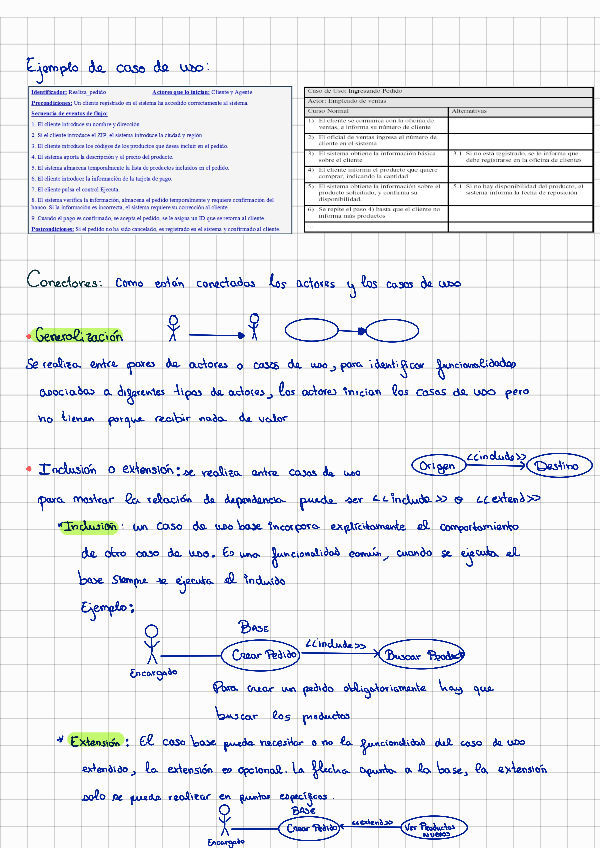 Ejemplo de caso de uso:
Identificador: Realiza_pedido Actores que lo inician: Cliente y Agente
Precondiciones: Un cliente registrado en el sistema ha accedido correctamente al sistema.
Secuencia de eventos de flujo:
1. El cliente introduce su nombre y dirección
2. Si el cliente introduce el ZIP, el sistema introduce la ciudad y región
3. El cliente introduce los códigos de los productos que desea incluir en el pedido.
4. El sistema aporta la descripción y el precio del producto.
5. El sistema almacena temporalmente la lista de productos incluidos en el pedido.
6. El cliente introduce la información de la tarjeta de pago.
7. El cliente pulsa el control Ejecuta.
8. El sistema verifica la información, almacena el pedido temporalmente y requiere confirmación del
banco. Si la información es incorrecta, el sistema requiere su corrección al cliente.
9. Cuando el pago es confirmado, se acepta el pedido, se le asigna un ID que se retorna al cliente.
Postcondiciones: Si el pedido no ha sido cancelado, es registrado en el sistema y confirmado al cliente.
Caso de Uso: Ingresando Pedido
Actor: Empleado de ventas
Curso Normal Alternativas
1) El cliente se comunica con la oficina de
ventas, e informa su número de cliente
2) El oficial de ventas ingresa el número de
cliente en el sistema
3) El sistema obtiene la información básica
sobre el cliente
3.1 Si no está registrado, se le informa que
debe registrarse en la oficina de clientes
4) El cliente informa el producto que quiere
comprar, indicando la cantidad
5) El sistema obtiene la información sobre el
producto solicitado, y confirma su
disponibilidad.
5.1 Si no hay disponibilidad del producto, el
sistema informa la fecha de reposición
6) Se repite el paso 4) hasta que el cliente no
informa más productos
Conectores: Como están conectados los actores y los casos de uso
• Generalización
Se realiza entre pares de actores o casos de uso, para identificar funcionalidades
asociadas a diferentes tipos de actores, los actores inician los casos de uso pero
no tienen porque recibir nada de valor
• Inclusión o extensión: se realiza entre casos de uso
Origen <<include>> Destino
para mostrar la relación de dependencia puede ser <<include>> o <<extend>>
*Inclusión: un caso de uso base incorpora explícitamente el comportamiento
de otro caso de uso. Es una funcionalidad común, cuando se ejecuta el
base siempre se ejecuta el incluido
Ejemplo:
BASE
Crear Pedido <<include>> Buscar Product
Encargado
Para crear un pedido obligatoriamente hay que
buscar los productos
* Extensión: El caso base puede necesitar o no la funcionalidad del caso de uso
extendido, la extensión es opcional. La flecha apunta a la base, la extensión
solo se puede realizar en puntos específicos.
BASE
Crear Pedido <<extend>> Ver Productos
nuevos
Encargado